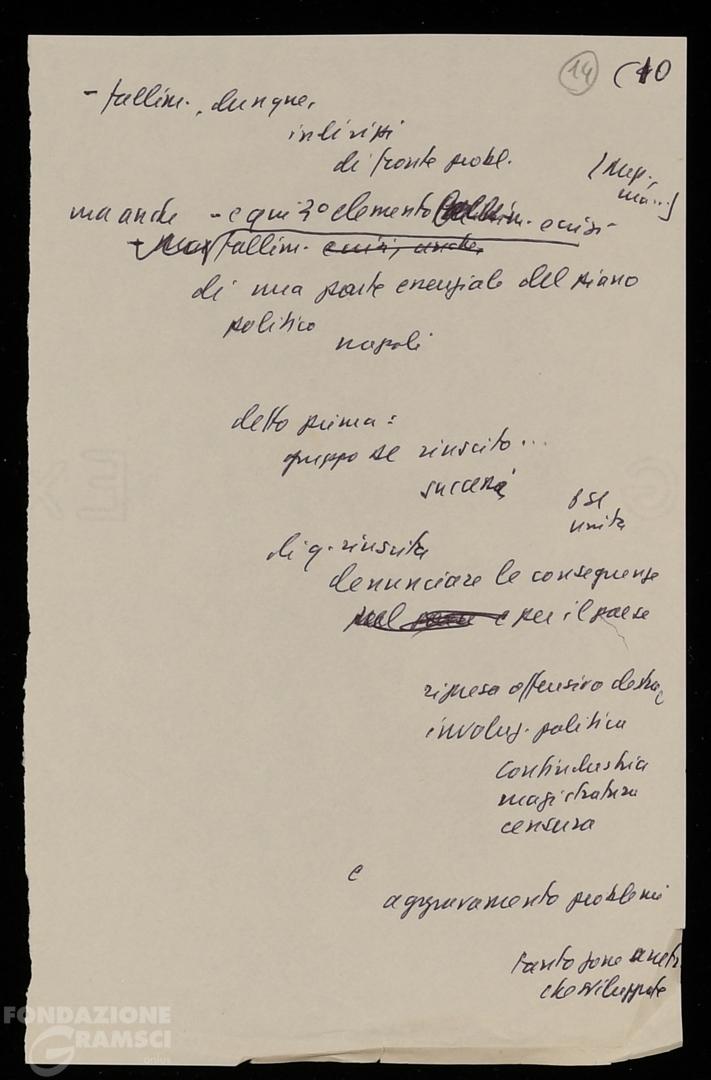 14 (10
- fallim., dunque,
indirizzi
di fronte probl.
ma anche - e qui 3° elemento fallim. e crisi
fallim. e crisi, anche,
di una parte essenziale del piano
politico
napoli
detto prima:
gruppo se riuscito...
successo
PSI
unità
di q. riuscita
denunciare le conseguenze
e per il paese
ripresa offensiva destra
involuz. politica
confindustria
magistratura
censura
e
aggravamento problemi
tanto zone arretr.
che sviluppate
FONDAZIONE
GRAMSCI
onlus